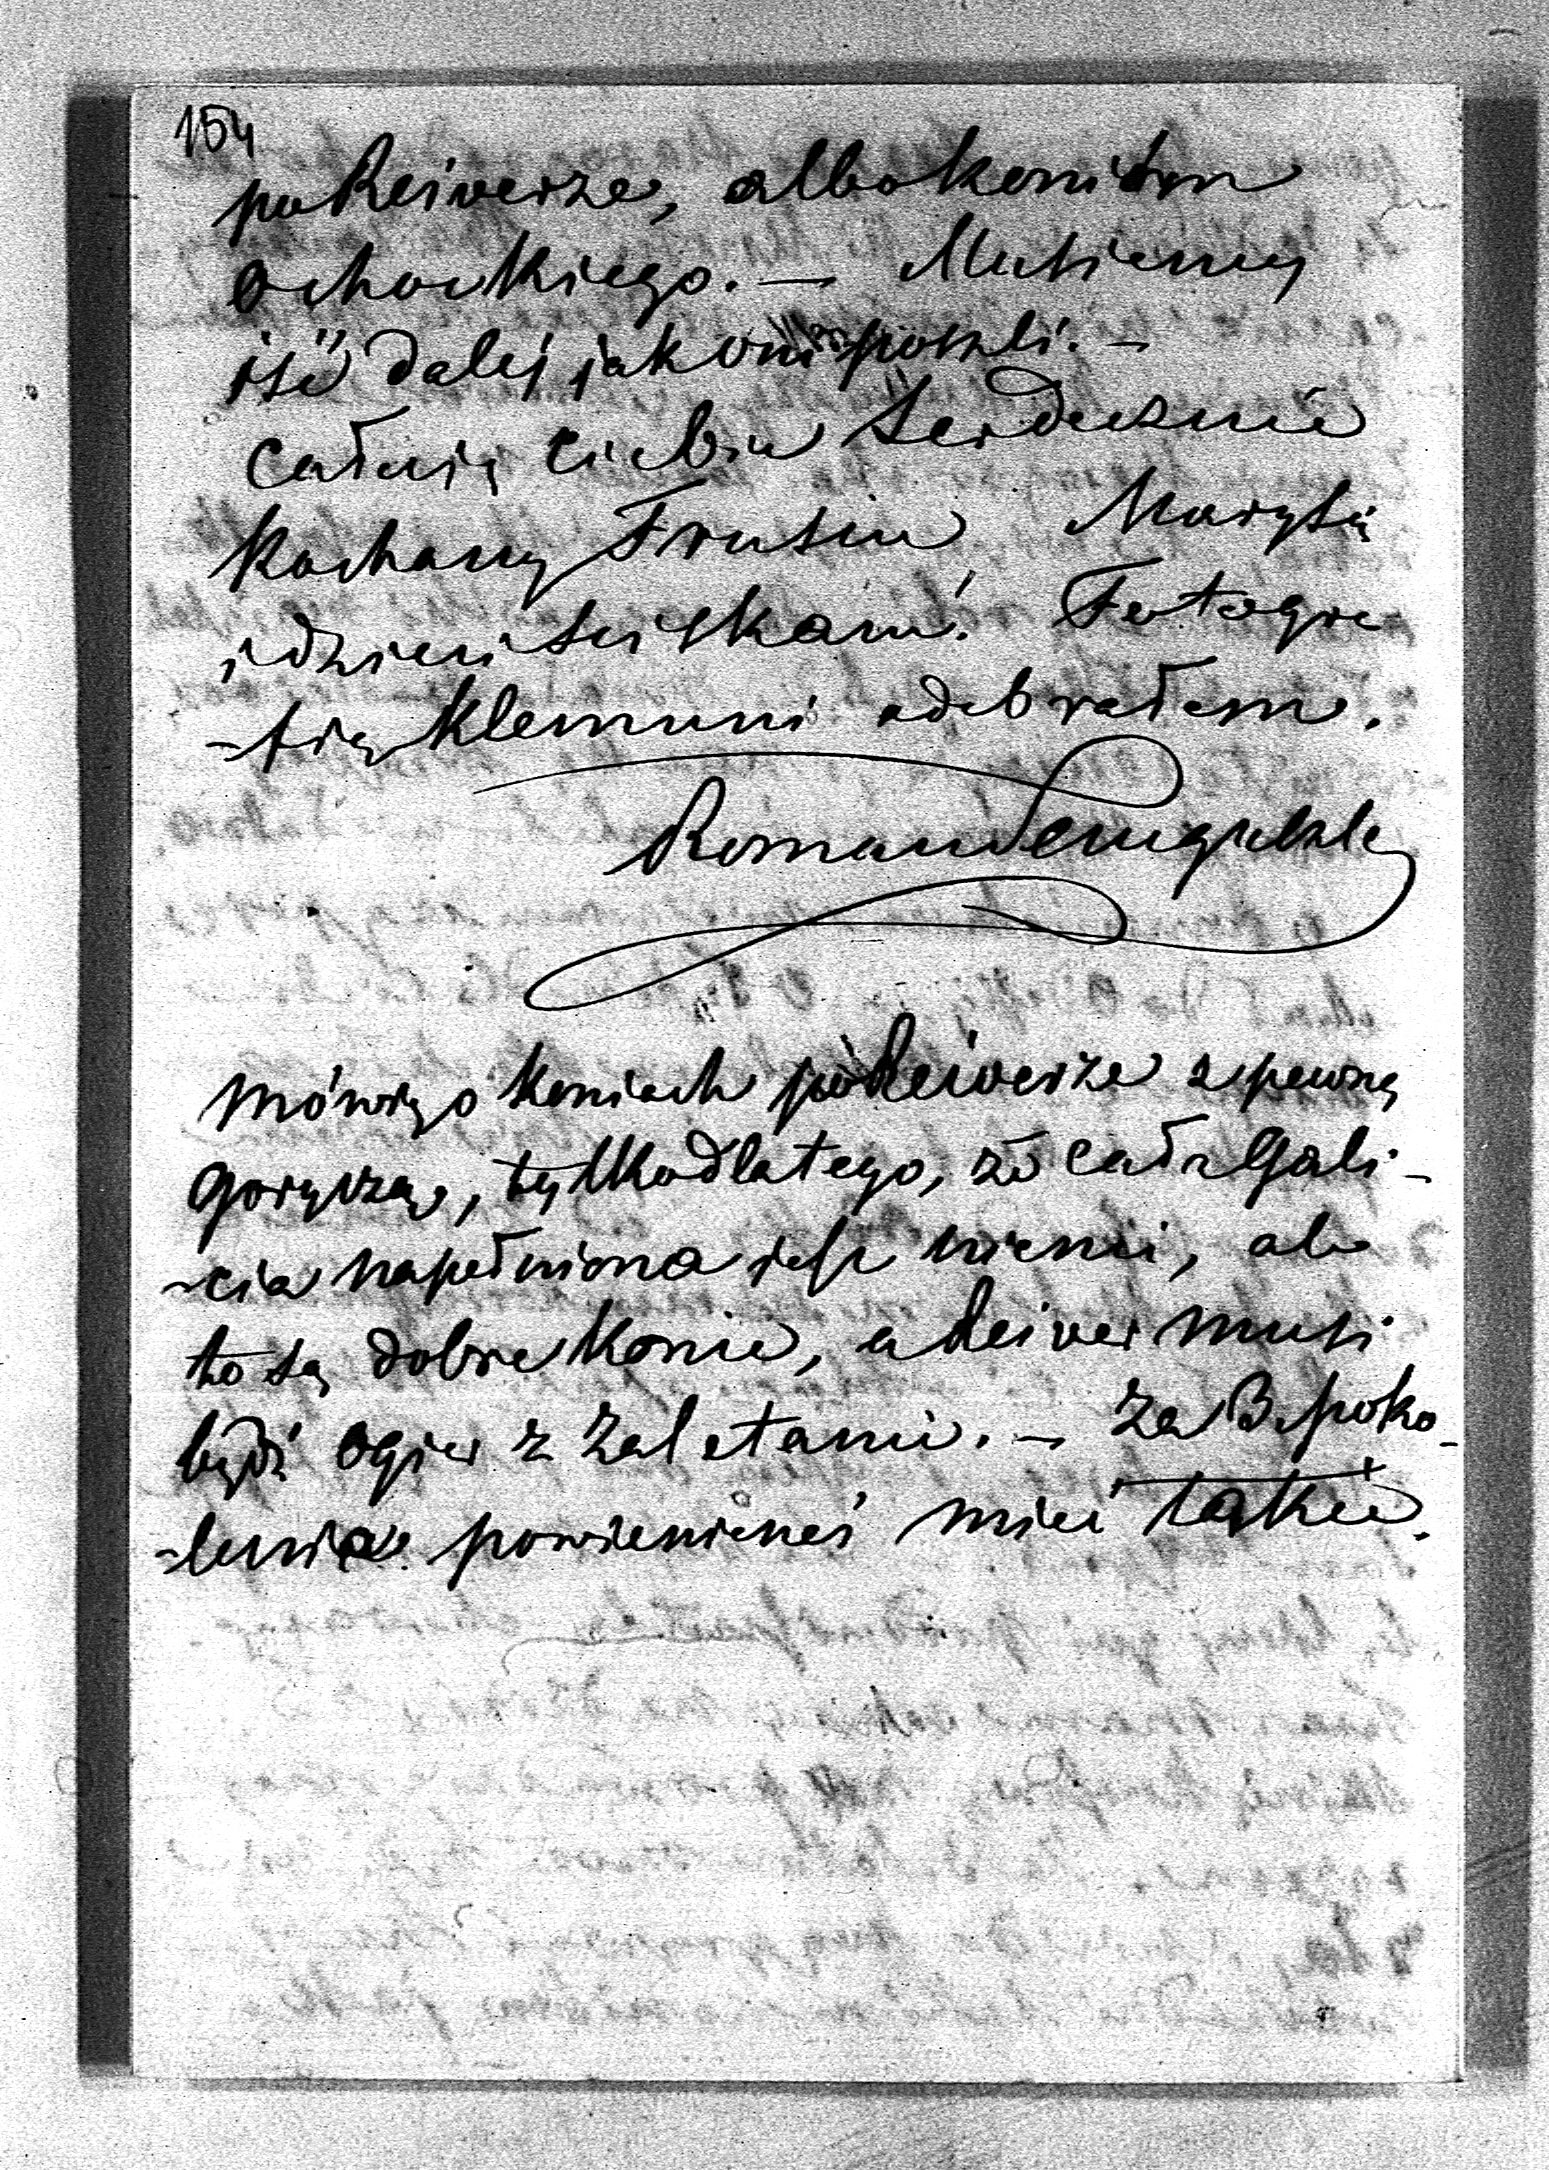 154
po Reiverze, albo koni tym
Ochockiego. — Musiemy
iść dalej jak oni poszli. —
Całuję Ciebie Serdecznie
Kochany Frusiu Marysię
i dzieci ściskam! Fotogra-
-fię Klemuni odebrałem.
Roman
Mówię o koniach po Reiverze z pewną
goryczą, tylko dlatego, że cała Gali-
-cia napełniona jest niemi, ale
to są dobre konie, a Reiver musi
bydź ogier z zaletami. — Za 3. poko-
-lenia powinieneś mieć takie.